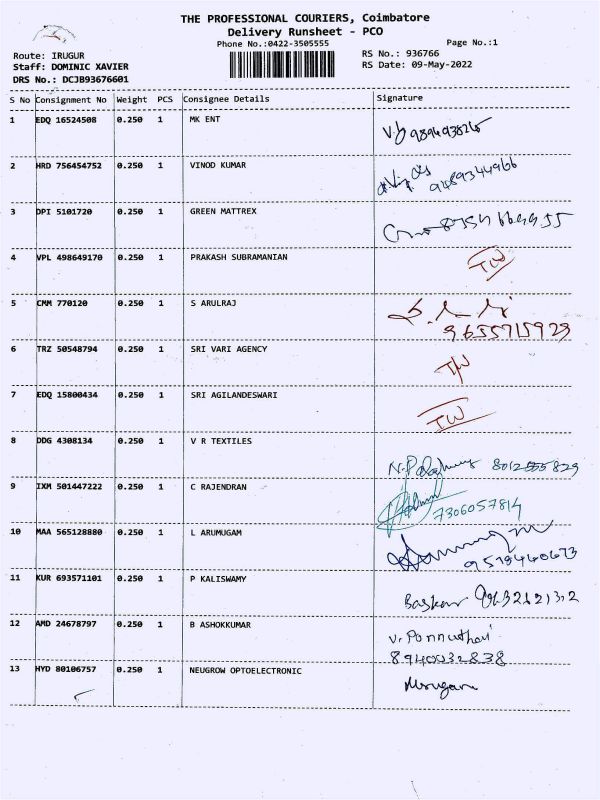 THE PROFESSIONAL COURIERS, Coimbatore
Delivery Runsheet - PCO
Phone No.:0422-3505555
Page No.:1
Route: IRUGUR
RS No.: 936766
Staff: DOMINIC XAVIER
RS Date: 09-May-2022
DRS No.: DCJB93676601
S No Consignment No Weight PCS Consignee Details Signature
1 EDQ 16524508 0.250 1 MK ENT
2 HRD 756454752 0.250 1 VINOD KUMAR 9489344966
3 DPI 5101720 0.250 1 GREEN MATTREX
4 VPL 498649170 0.250 1 PRAKASH SUBRAMANIAN
5 CMM 770120 0.250 1 S ARULRAJ
9655715929
6 TRZ 50548794 0.250 1 SRI VARI AGENCY
7 EDQ 15800434 0.250 1 SRI AGILANDESWARI
8 DDG 4308134 0.250 1 V R TEXTILES
9 IXM 501447222 0.250 1 C RAJENDRAN
7306057814
10 MAA 565128880 0.250 1 L ARUMUGAM
11 KUR 693571101 0.250 1 P KALISWAMY
Baskar
12 AMD 24678797 0.250 1 B ASHOKKUMAR
V. Ponnuthai
8940032838
13 HYD 80106757 0.250 1 NEUGROW OPTOELECTRONIC